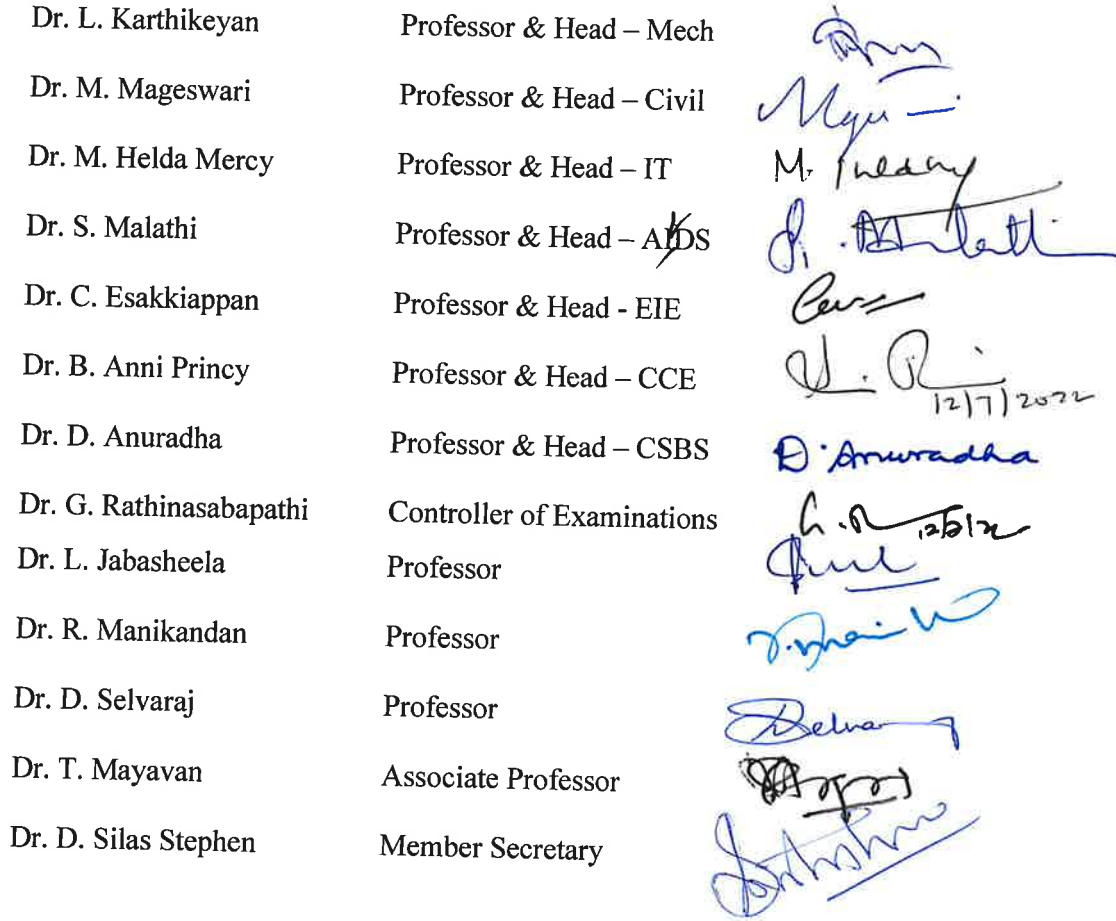 Dr. L. Karthikeyan Professor & Head – Mech
Dr. M. Mageswari Professor & Head – Civil
Dr. M. Helda Mercy Professor & Head – IT M.
Dr. S. Malathi Professor & Head – AIDS S. Malathi
Dr. C. Esakkiappan Professor & Head - EIE
Dr. B. Anni Princy Professor & Head – CCE
12/7/2022
Dr. D. Anuradha Professor & Head – CSBS D. Anuradha
Dr. G. Rathinasabapathi Controller of Examinations
Dr. L. Jabasheela Professor
Dr. R. Manikandan Professor
Dr. D. Selvaraj Professor
Dr. T. Mayavan Associate Professor
Dr. D. Silas Stephen Member Secretary